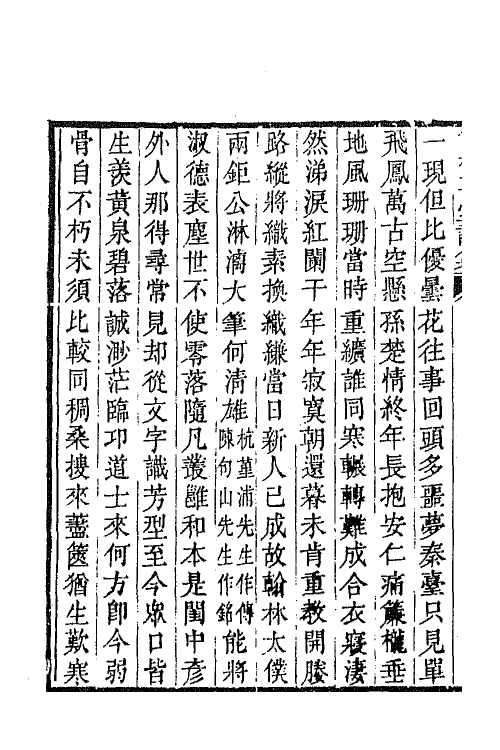 一現但比優曇花往事回頭多噩夢秦臺只見單
飛鳳萬古空懸孫楚情終年長抱安仁痛簾櫳垂
地風珊珊當時重纊誰同寒輾轉難成合衣寢淒
然涕淚紅闌干年年寂寞朝還暮未肯重教開媵
路縱將織素換織縑當日新人已成故翰林太僕
兩鉅公淋漓大筆何清雄杭堇浦先生作傳陳句山先生作銘能將
淑德表塵世不使零落隨凡叢雝和本是閨中彥
外人那得尋常見却從文字識芳型至今眾口皆
生羨黃泉碧落誠渺茫臨邛道士來何方卽今弱
骨自不朽未須比較同稠桑搜來藎篋猶生歎寒